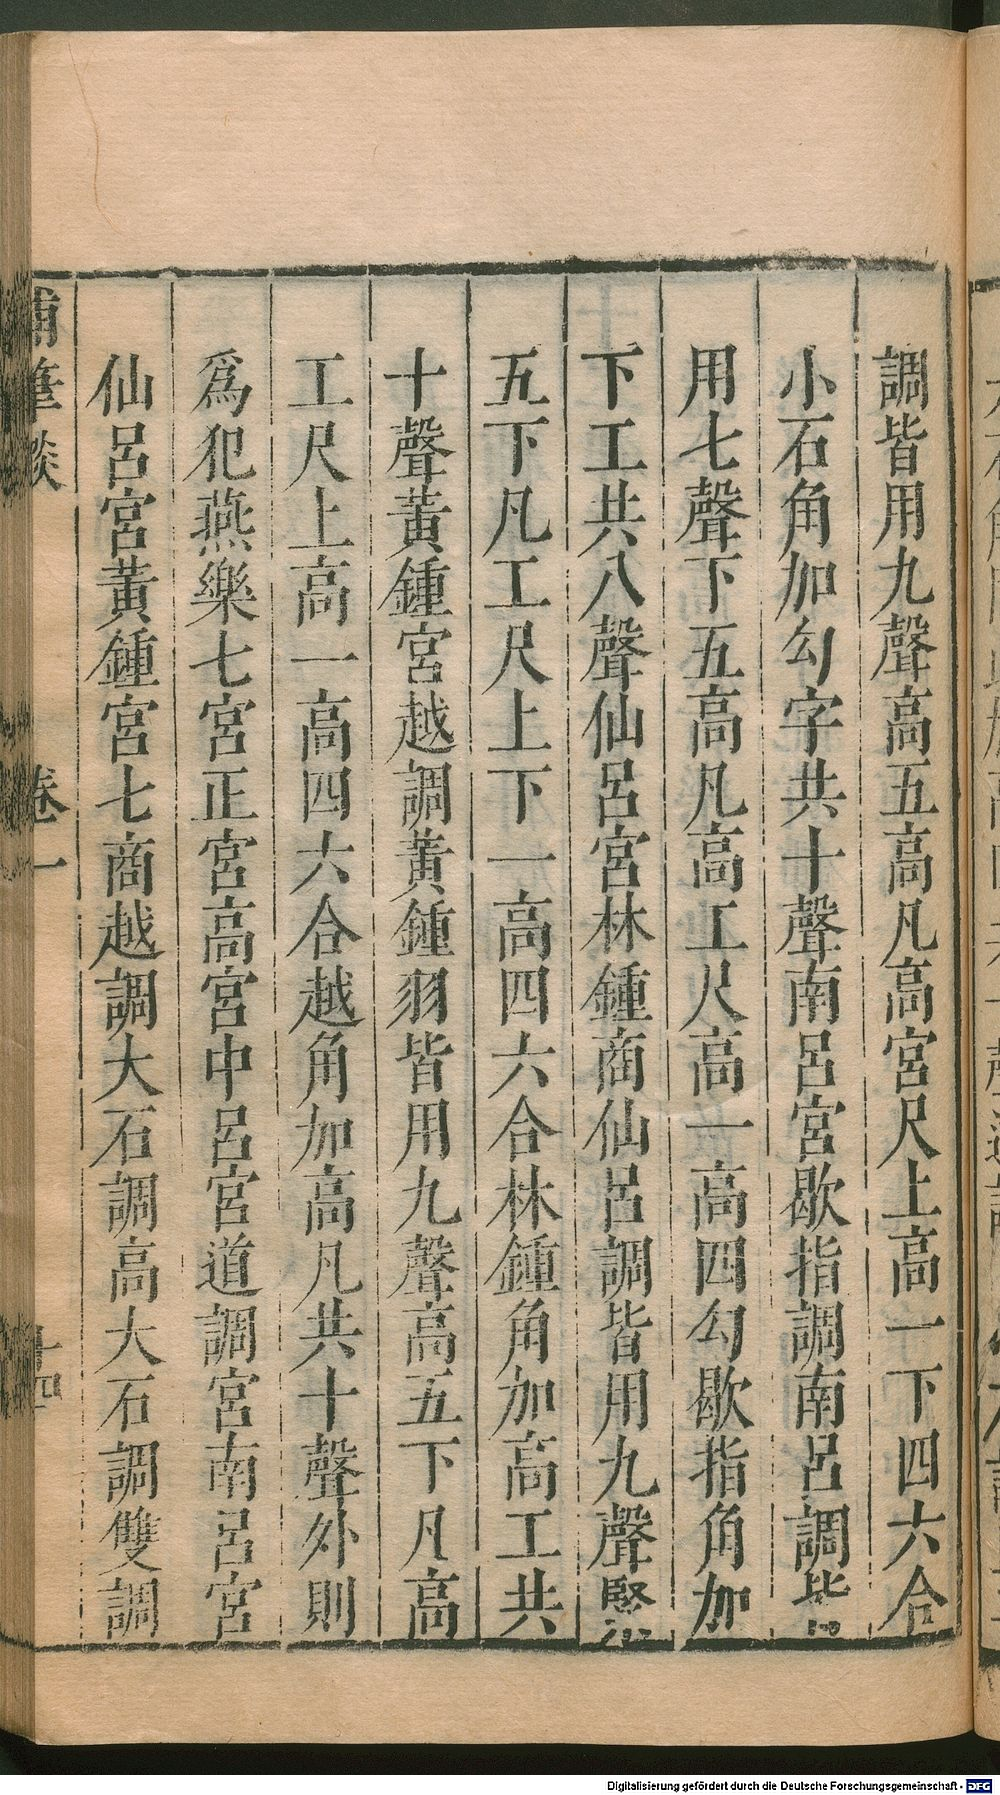 調皆用九聲高五高凡高宮尺上高一下四六合
小石角加勾字共十聲南呂宮歇指調南呂調皆
用七聲下五高凡高工尺高一高四勾歇指角加
下工共八聲仙呂宮林鍾商仙呂調皆用九聲
五下凡工尺上下一高四六合林鍾角加高工共
十聲黃鍾宮越調黃鍾羽皆用九聲高五下凡高
工尺上高一高四六合越角加高凡共十聲外則
爲犯燕樂七宮正宮高宮中呂宮道調宮南呂宮
仙呂宮黃鍾宮七商越調大石調高大石調雙調
補筆談 卷一 十四
Digitalisierung gefördert durch die Deutsche Forschungsgemeinschaft - DFG